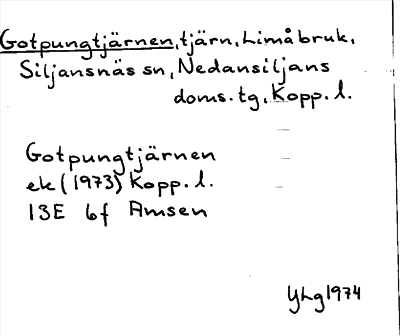 Gotpungtjärnen, tjärn, Limåbruk,
Siljansnäs sn, Nedansiljans
doms. tg, Kopp. l.
Gotpungtjärnen
ek (1973) Kopp. l.
13E 6f Amsen
YLg 1974